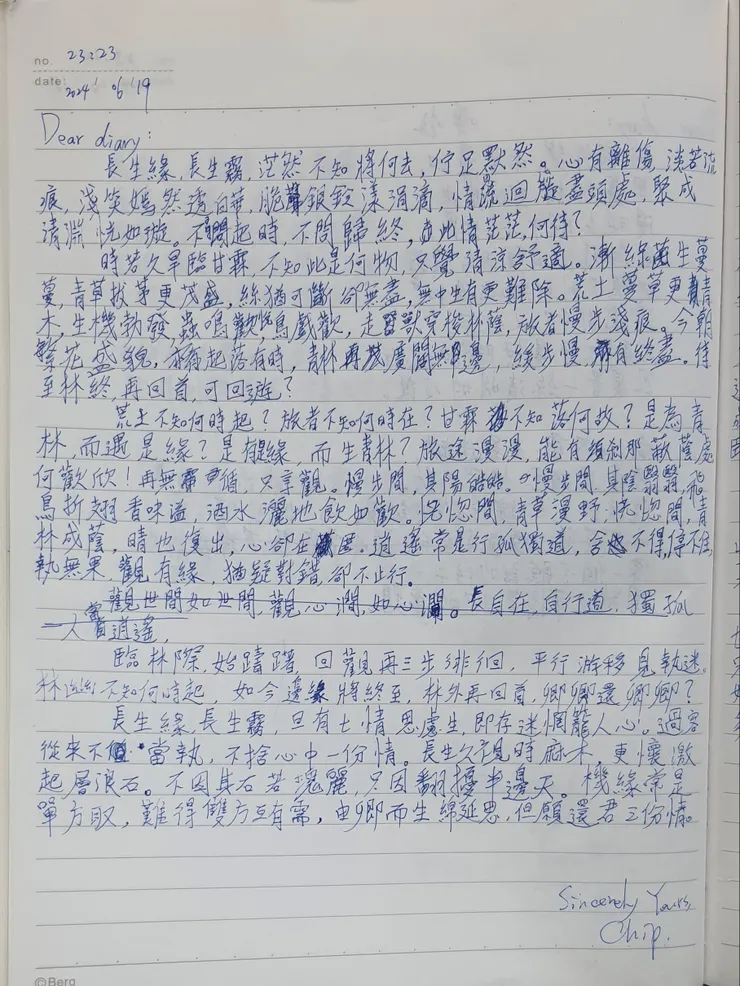 no. 23:23
date: 2024/06/19
Dear diary:
長生緣,長生霧,茫然不知將何去,佇足默然。心有離傷,淡若流
痕,淺笑嫣然透白華,脆銀鈴漾涓滴,情迴盡頭處,聚成
清淵,恍如璇。不問起時,不問歸終,由此情茫茫,何待?
時若久旱臨甘霖,不知此是何物,只覺清涼舒適。漸綠生蔓
蔓,青草拔茅更茂盛,絲猶可斷卻無盡,無中生有更難除。荒土蔓草更青
木,生機勃發,蟲鳴鳥戲歡,走獸穿梭林蔭,旅者慢步淺痕。今朝
繁花盛貌,亦有起落有時,青林再廣闊無邊,緩步慢有終盡。待
至林終,再回首,可回遊?
荒土不知何時起?旅者不知何時在?甘霖不知落何故?是為青
林,而遇是緣?是有緣,而生青林?旅途漫漫,能有須剎那蔭處
何歡欣!再無循,只享觀。慢步間,其陽皓皓。慢步間,其陰翳翳,飛
鳥折翅香味溢,酒水灑地飲如歡。恍惚間,青草漫野,恍惚間,青
林成蔭,晴也復出,心卻在。逍遙常是行孤獨道,舍不得,停不住,
執無果,觀有緣,猶疑對錯,卻不止行。
觀世間如世間,觀心瀾,如心瀾。長自在,自行道,獨孤
一人當逍遙,
臨林際,始躊躇,回觀再三步徘徊,平行游移見執迷。
林幽幽不知何時起,如今邊緣將終至,林外再回首,卿卿還卿卿?
長生緣,長生霧,旦有七情思慮生,即存迷惘籠人心。過客
從來不當執,不捨心中一份情。長生久視時麻木,更懷激
起層浪石。不因其石若瑰麗,只因翻擾半邊天。機緣常是
單方取,難得雙方互有需,由卿而生綿延思,但願還君三份情。
Sincerely Yours,
Chip.
©Berg